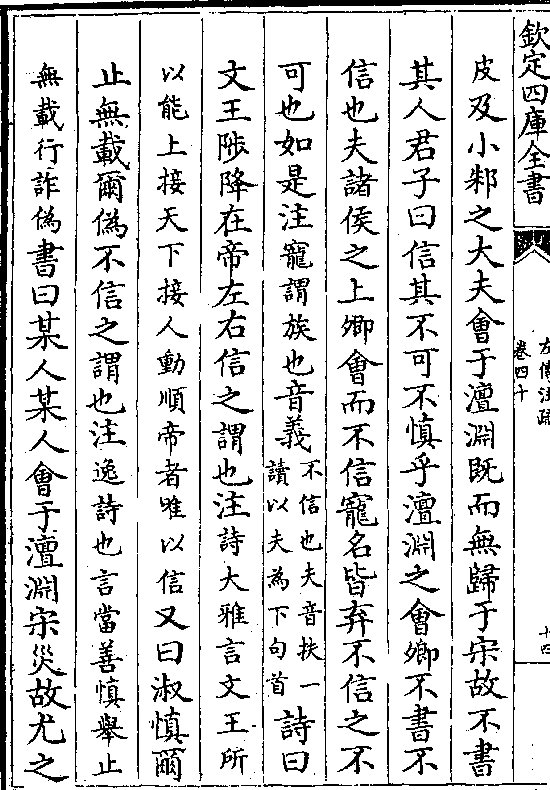 欽定四庫全書
左傳注疏
卷四十
十四
皮及小邾之大夫會于澶淵既而無歸于宋故不書
其人君子曰信其不可不慎乎澶淵之會卿不書不
信也夫諸侯之上卿會而不信寵名皆弃不信之不
可也如是注寵謂族也音義不信也夫音扶一讀以夫為下句首詩曰
文王陟降在帝左右信之謂也注詩大雅言文王所
以能上接天下接人動順帝者唯以信又曰淑慎爾
止無載爾偽不信之謂也注逸詩也言當善慎舉止
無載行詐偽書曰某人某人會于澶淵宋災故尤之